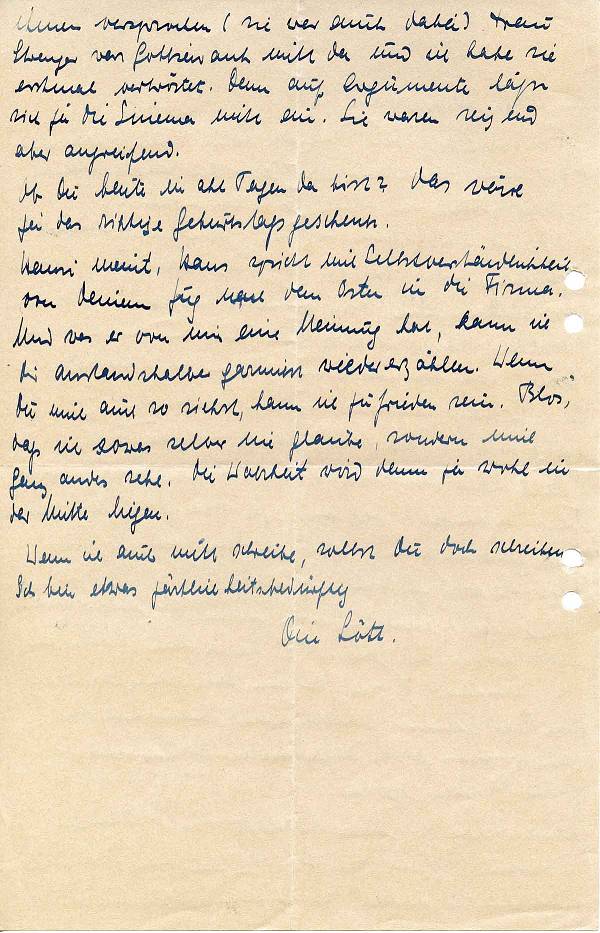 Ihnen versprochen (sie war auch dabei) Frau
war Gottseidank nicht da und ich habe sie
erstmal vertröstet. Denn auf Argumente läßt
sich ja die nicht ein. Sie waren reizend
aber angreifend.
Ob Du heute in acht Tagen da bist? Das wäre
ja das richtige Geburtstagsgeschenk.
Hansi meint, Hans spricht mit Selbstverständlichkeit
von Deinem Zug nach dem Osten in die Firma.
Und was er von mir eine Meinung hat, kann ich
Dir anstandshalber garnicht wiedererzählen. Wenn
Du mich auch so siehst, kann ich zufrieden sein. Blos,
daß ich sowas selber nie glaube, sondern mich
ganz anders sehe. Die Wahrheit wird denn ja wohl in
der Mitte liegen.
Wenn ich auch nicht schreibe, sollst Du doch schreiben.
Ich bin etwas zärtlichkeitsbedürftig
Die Lött.